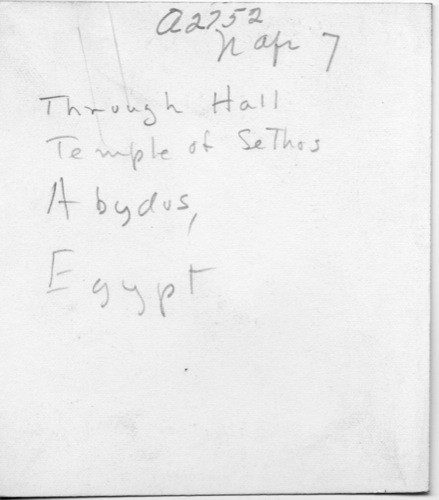 A2752
N Apr 7
Through Hall
Temple of Sethos
Abydus,
Egypt